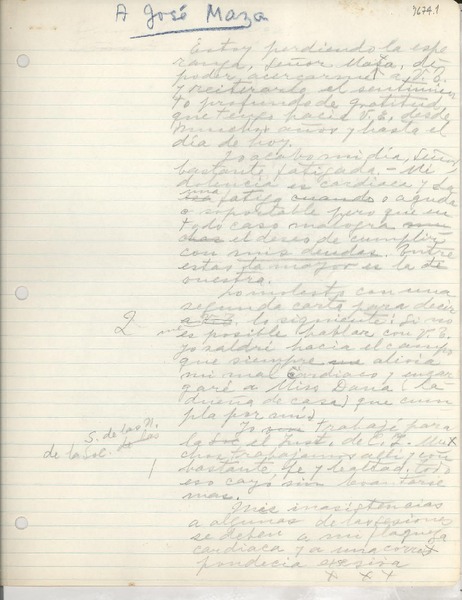 A José Maza
Estoy perdiendo la espe
ranza, señor Maza, de
poder acercarme a V. E.
y reiterarle el sentimien
to profundo de gratitud
que tengo hacia V. E. desde
muchos años y hasta el
día de hoy.
Yo acabo mi día, Señor,
bastante fatigada. - Mi
dolencia es cardíaca y
una fatiga cuando o aguda
o soportable pero que en
todo caso malogra
el deseo de cumplir
con mis deudas. Entre
estas la mayor es la de
nuestra.
Lo molesto con una
segunda carta para decir
a V. E. lo siguiente: Si no
2 me es posible hablar con V. E.
yo saldré hacia el campo
que siempre me alivia
mi mal cardíaco y encar
garé a Miss Dana (la
dueña de casa) que cum
pla por mí.
Yo trabajé para
S. de las N.
de la Soc. de las
la el Inst. de C. I. Mu
chos trabajamos allí y con
bastante fe y lealtad, todo
1
eso cayó sin levantarse
mas.
Mis inasistencias
a algunas de las sesiones
se deben a mi flaqueza
cardíaca y a una corres
pondecia excesiva
x x x